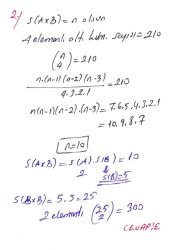 2/ s(AxB)=n olsun
4 elemanlı alt küm. sayısı=210
(n 4) = 210
n.(n-1)(n-2)(n-3) / 4.3.2.1 = 210
n(n-1)(n-2).(n-3)=7.6.5.4.3.2.1
=10.9.8.7
n=10
s(AxB)=s(A).s(B)=10
2 s(B)=5
s(BxB)=5.5=25
2 elemanlı (25 2) = 300
CEVAP E